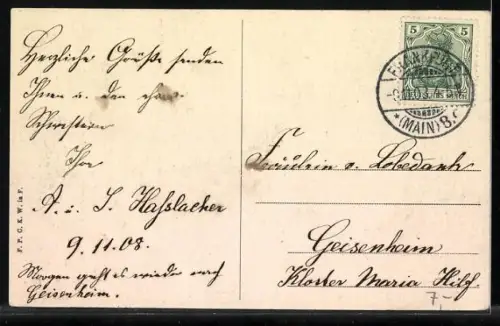 Herzliche Grüße senden
Ihnen u. den
Schwestern
Ihre
A. u. S. Hasslacher
9.11.08.
Morgen geht es wieder nach
Geisenheim.
F. F. C. K. W. in F.
5 5
FRANKFURT
*(MAIN) 8.
Fräulein v. Lobedank
Geisenheim
Kloster Maria Hilf.
7,-